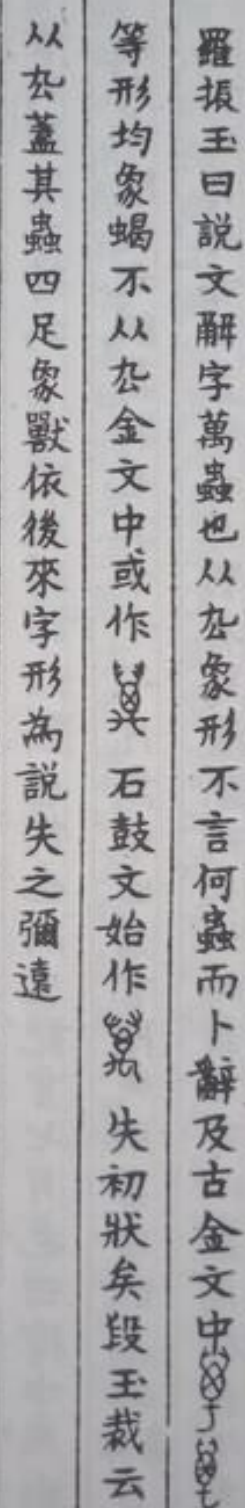 羅振玉曰説文解字萬蟲也从厹象形不言何蟲而卜辭及古金文中
等形均象蝎不从厹金文中或作 石鼓文始作 失初狀矣段玉裁云
从厹蓋其蟲四足象獸依後來字形為說失之彌遠